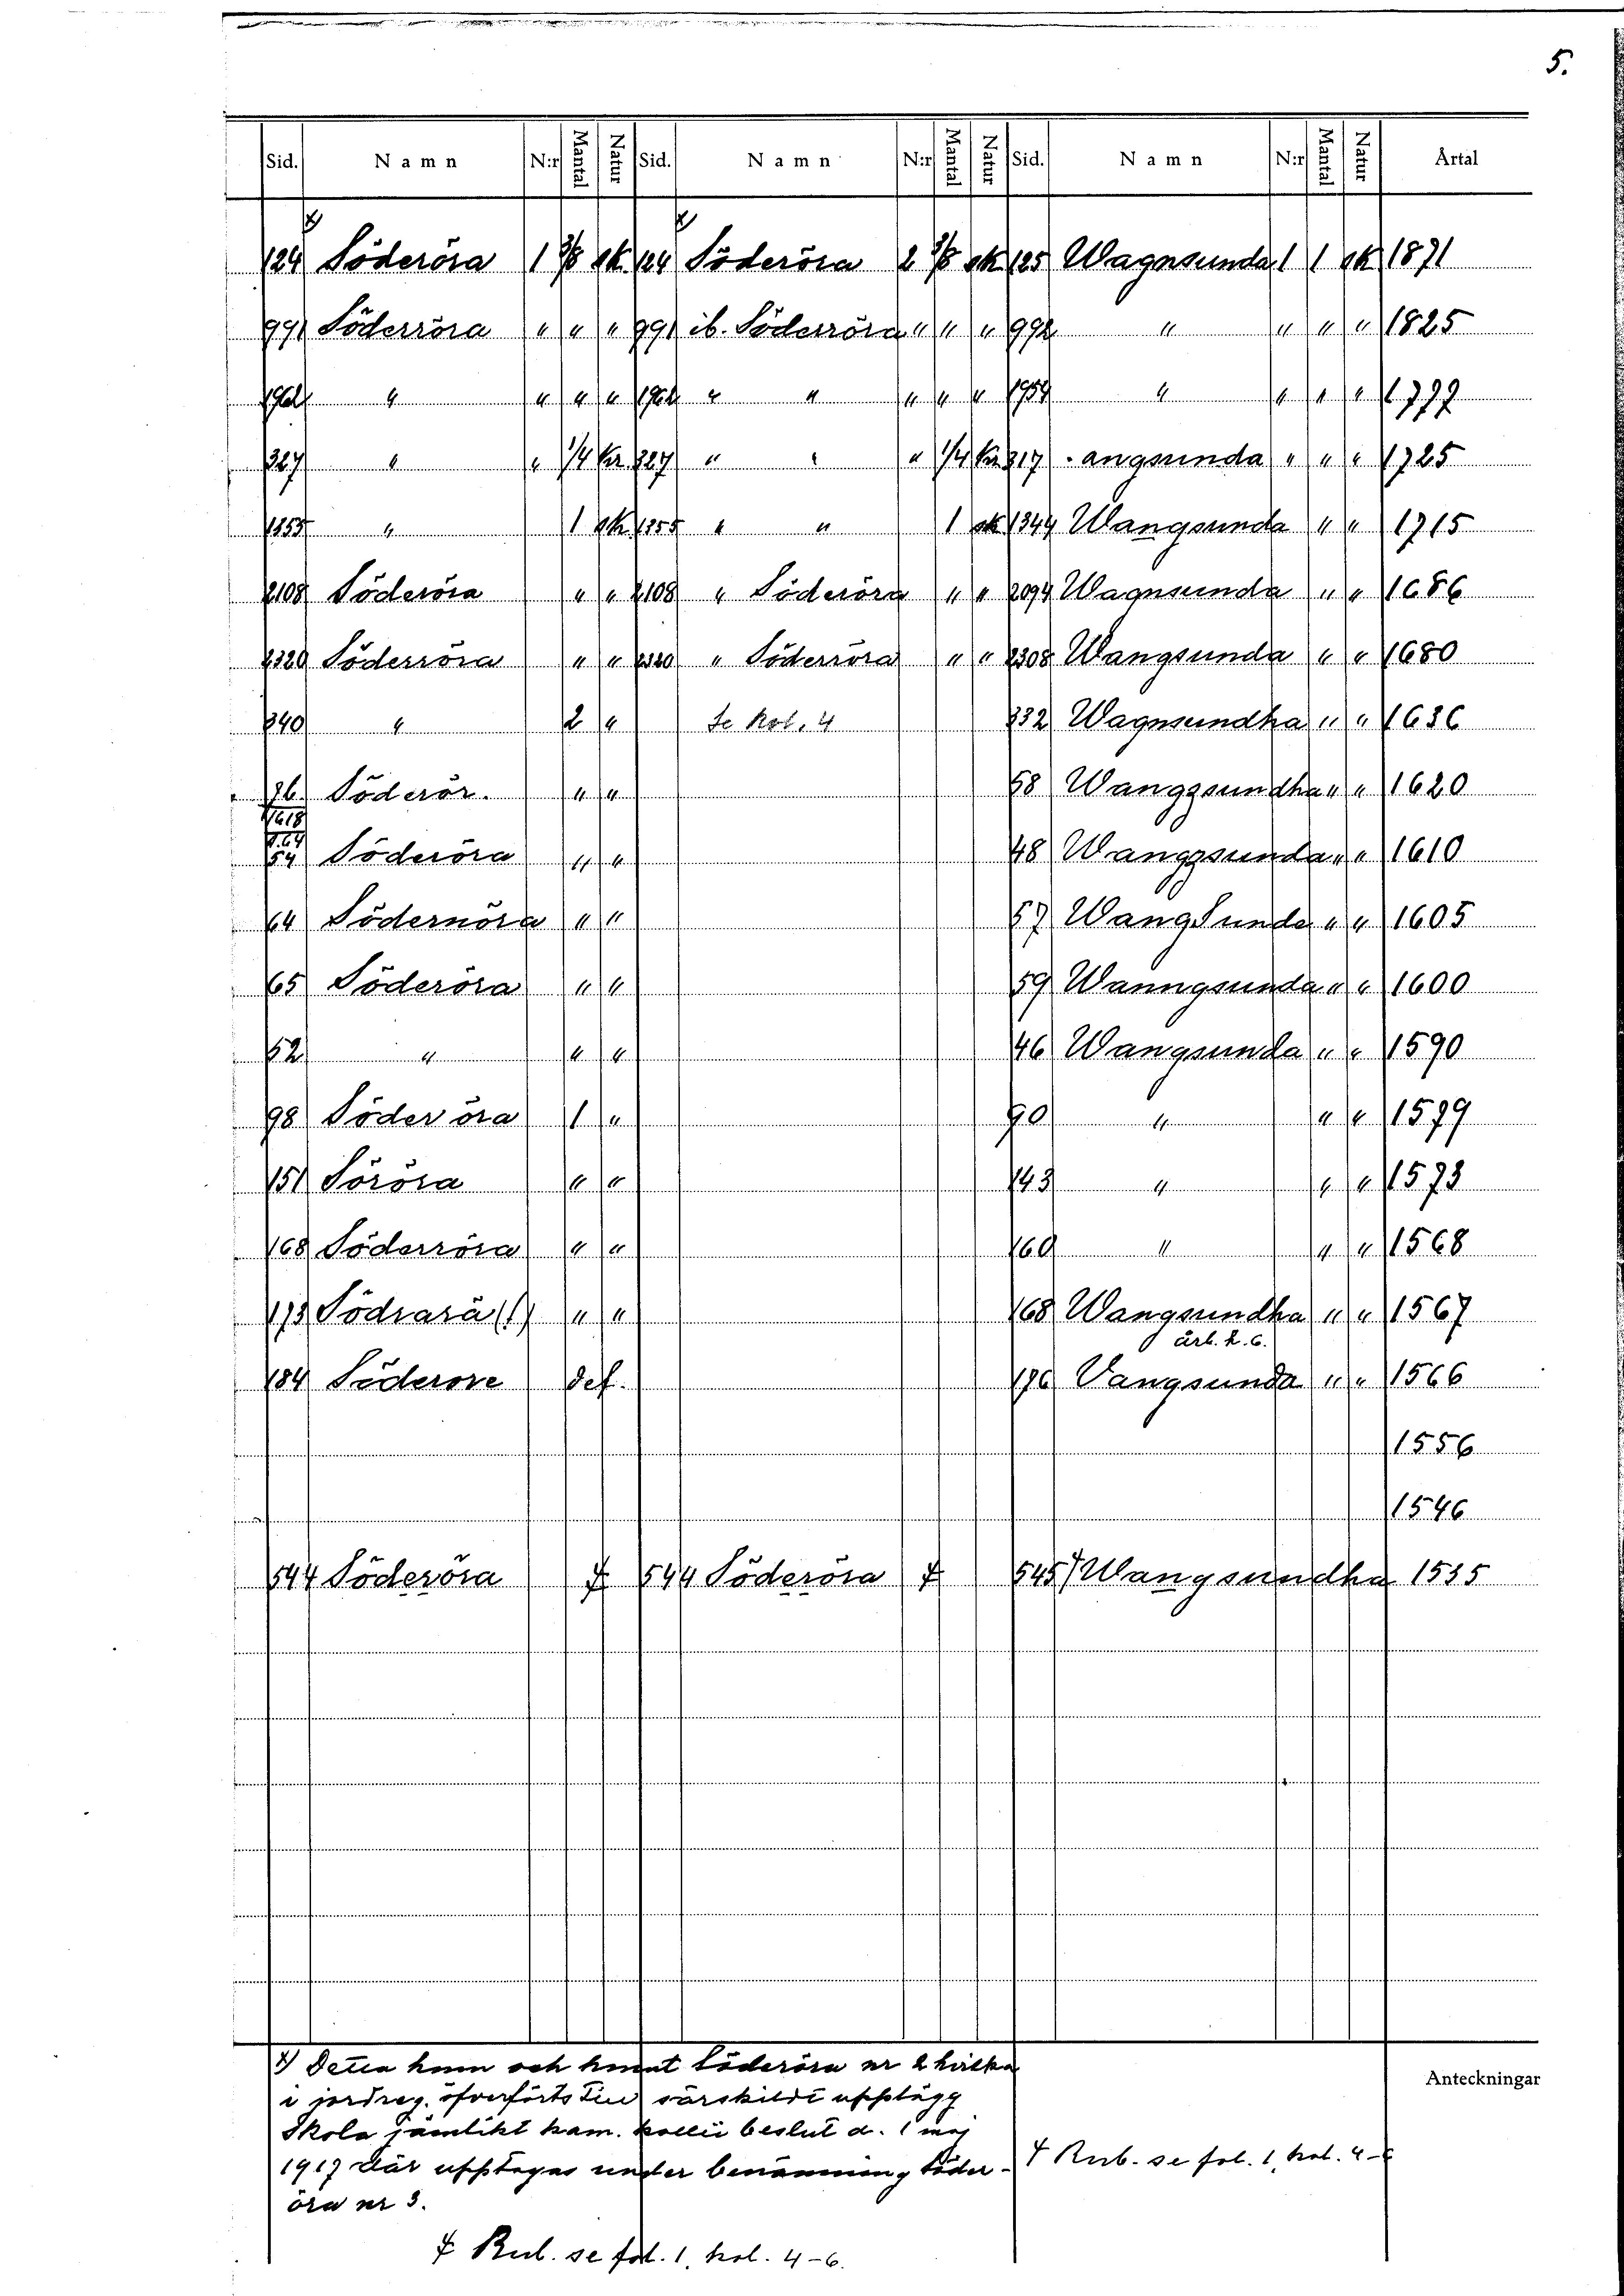 5.
Sid. Namn N:r Mantal Natur Sid. Namn N:r Mantal Natur Sid. Namn N:r Mantal Natur Årtal
124 Söderöra 1 3/8 sk 124 Söderöra 2 3/8 sk 125 Wagnsunda 1 1 sk 1871
991 Söderröra " " " 991 ib. Söderröra " " " 992 " " " " 1825
" " " " " " " " " 1959 " " " " 1777
327 " " 1/4 kr 327 " " " 1/4 kr 317 - angsunda " " " 1725
1355 " 1 sk 1355 " " 1 sk 1344 Wangsunda " " 1715
2108 Söderöra " " 2108 " Söderöra " " 2094 Wagnsunda " " 1686
2320 Söderröra " " 2320 " Söderröra " " 2308 Wangsunda " " 1680
340 " 2 " Se kol. 4 332 Wagnsundha " " 1636
76 Söderör. " " 68 Wanggsundha " " 1620
1618
54 Söderöra " " 48 Wanggsunda " " 1610
64 Södernöra " " 57 Wangsunda " " 1605
65 Söderöra " " 59 Wanngsunda " " 1600
52 " " " 46 Wangsunda " " 1590
98 Söder öra 1 " 90 " " " 1579
151 Söröra " " 143 " " " 1573
168 Söderröra " " 160 " " " 1568
173 Södrarä (!) " " 168 Wangsundha " " 1567
årl. h. 6.
184 Söderore def. 176 Vangsunda " " 1566
1556
1546
544 Söderöra ‡ 544 Söderöra ‡ 545 † Wangsundha 1535
x) Detta hem och hemat Söderöra nr 2 hvilka
i jordreg. öfverförts till särskildt upplägg
Skola jämlikt kam. kollii beslut d. 1 maj
1917 där upptagas under benämning Söder-
öra nr 3.
‡ Rub. se fol. 1, kol. 4-6.
† Rub. se fol. 1, kol. 4-6
Anteckningar